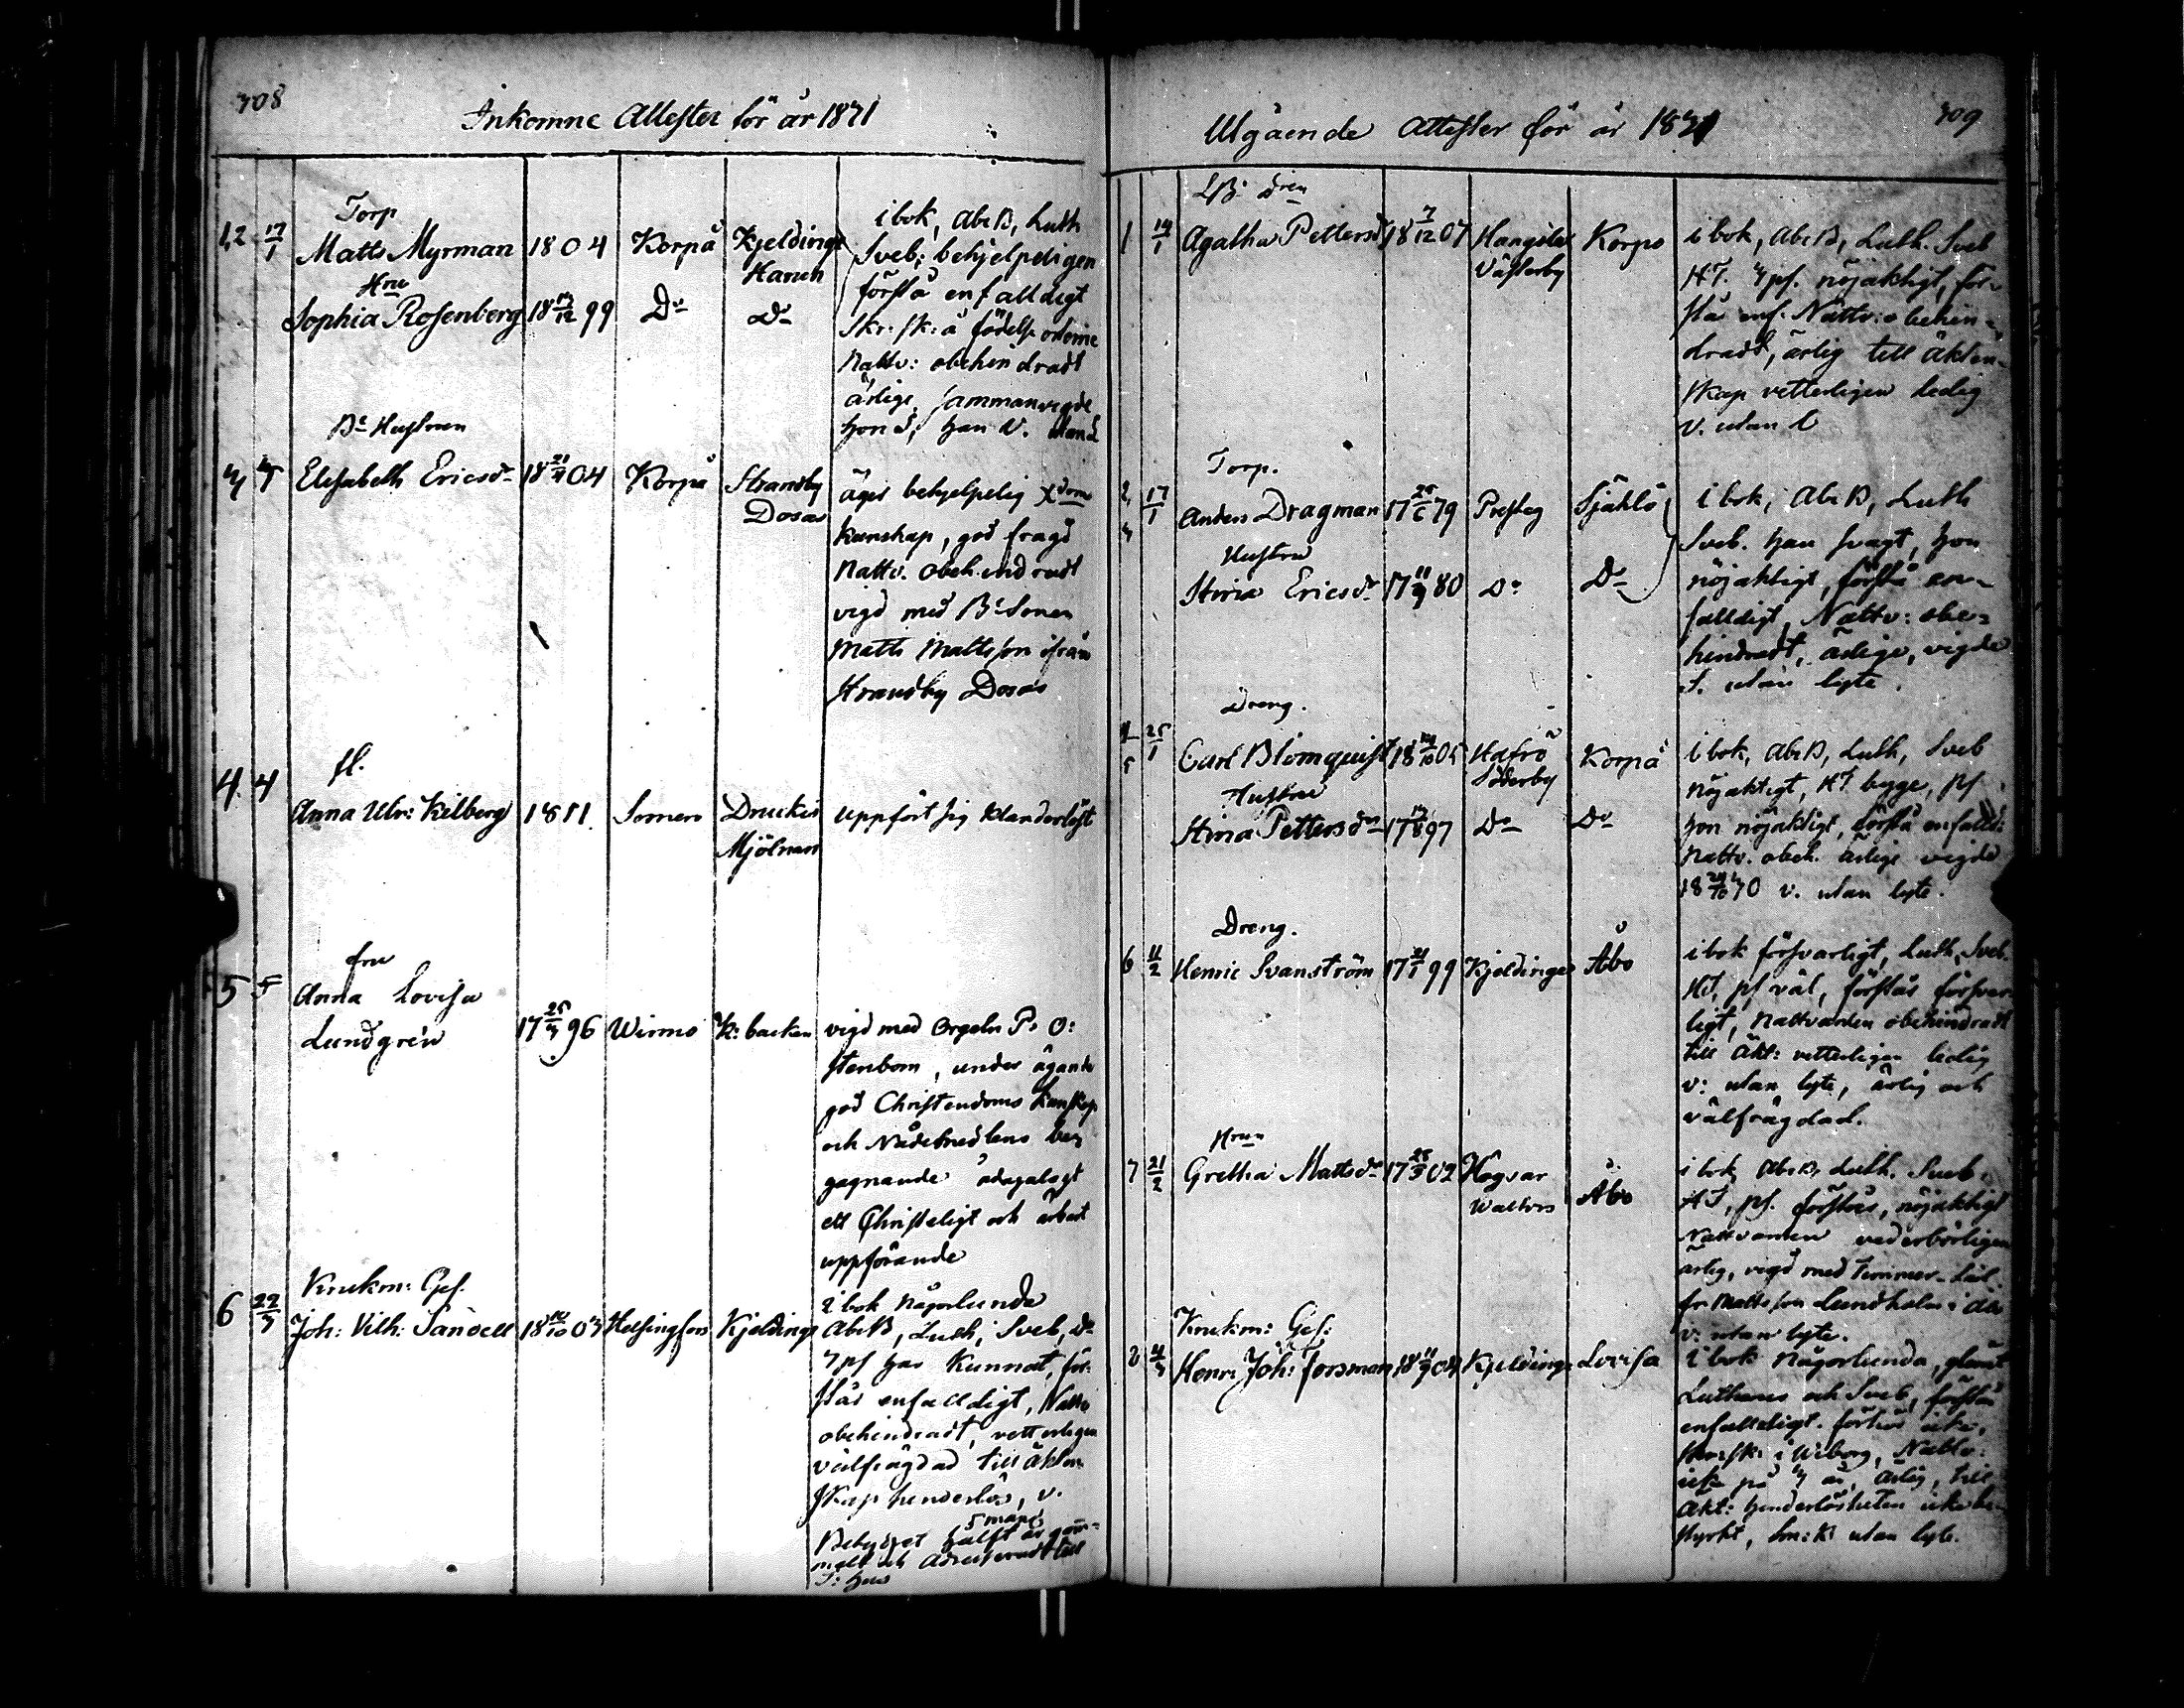 708
Inkomne Attester för år 1831
1,2 17/1
Torp
Matts Myrman 1804 Korpå Kjeldinge
Harun
Hru
Sophia Rosenberg 18 17/12 99 Do Do
i bok, Abc B, Luth
Sveb: behjelpeligen
förstå enfalldigt
Skr: sk: å födelse
Nattv: obehindradt
ärlige, sammanvigde
hon S, han V. utan L
Be Hustrun
3 4 Elisabeth Ericsdr 18 21/4 04 Korpå Strandby
Dosas
äger behjelpelig Xdoms
kunskap, god fragd
Nattv. obehindradt
vigd med Be Sonen
Matts Mattsson ifrån
Strandby Dosas
fl.
4. 4
Anna Ulr: Kilberg 1811. Somero Druckis
Mjölnars
uppfört sig klanderlöst
fru
5 5 Anna Lovisa
Lundgrén 17 25/3 96 Wirmo K: backen
vigd med Orgeln P: O:
Stenbom, under ägande
god Christendoms kunskap
och Nådemedlens be-
gagnande ådagalagt
ett Christeligt och arbet
uppförande
Krukm: Ges.
6 22/3 Joh: Vilh: Sandell 18 10/10 03 Helsingfors Kjeldinge
i bok någorlunda
Abc B, Luth, Sveb, Do
7 ps har kunnat, för-
står enfalldigt, Nattv
obehindradt, vetterligen
välfrägdad till äkten-
skap henderlös, v.
5 man
Betyget hälft år gam-
malt och adresseradt till
709
Utgående Attester för år 1831
LB: drn
1 14/1 Agatha Pettersd 18 7/12 07 Hangslax
Västerby
Korpo
i bok, Abc B, Luth. Sveb
HT. 7 ps. nöjaktigt, för-
står enf. Nattv: obehin-
dradt, ärlig till äkten-
skap vetterligen ledig
v. utan l
2, 17/1
3
Torp.
Anders Dragman 17 25/6 79 Prestag Själlö
Hustru
Stina Ericsdr 17 11/9 80 Do Do
i bok, Abc B, Luth
Sveb. han svagt, hon
nöjaktigt, förstå en-
falldigt, Nattv: obe-
hindradt, ärlige, vigde
S. utan lyte.
Dreng.
4 25/1
5
Carl Blomquist 18 10/10 05 Hafrö
Söderby
Korpå
Hustru
Stina Pettersdr 17 17/8 97 Do Do
i bok, Abc B, Luth, Sveb
nöjaktigt, HT begge, ps
hon nöjaktigt, förstå enfalld:
Nattv. obeh. ärlige vigde
18 24/10 30 v. utan lyte.
Dreng.
6 11/2 Henric Svanström 17 21/1 99 Kjeldinge Åbo
i bok försvarligt, Luth, Sveb.
HT, ps väl, förstår försvar-
ligt, Nattvarden obehindradt
till Äkt: vetterligen ledig
v: utan lyte, ärlig och
välfrägdad.
Hrun
7 21/2 Gretha Mattsdr 17 25/3 02 Högsar
Walters
Åbo
i bok Abc B, Luth. Sveb.
HT, ps. förstås, nöjaktigt
Nattvarden vederbörligen
ärlig, vigd med Timmer-
Mattsson Lundholm i Åbo
v: utan lyte.
Krukm: Ges:
8 4/3 Henr: Joh: Forsman 18 11/9 04 Kjeldinge Lovisa
i bok någorlunda, glömt
Lutherus och Sveb, förstår
enfalldigt. förhör icke,
Skr: sk: i Wiborg, Nattv:
icke på 3 år, ärlig, till
Äkt: henderlösheten icke be-
styrkt, sm: k: utan lyte.